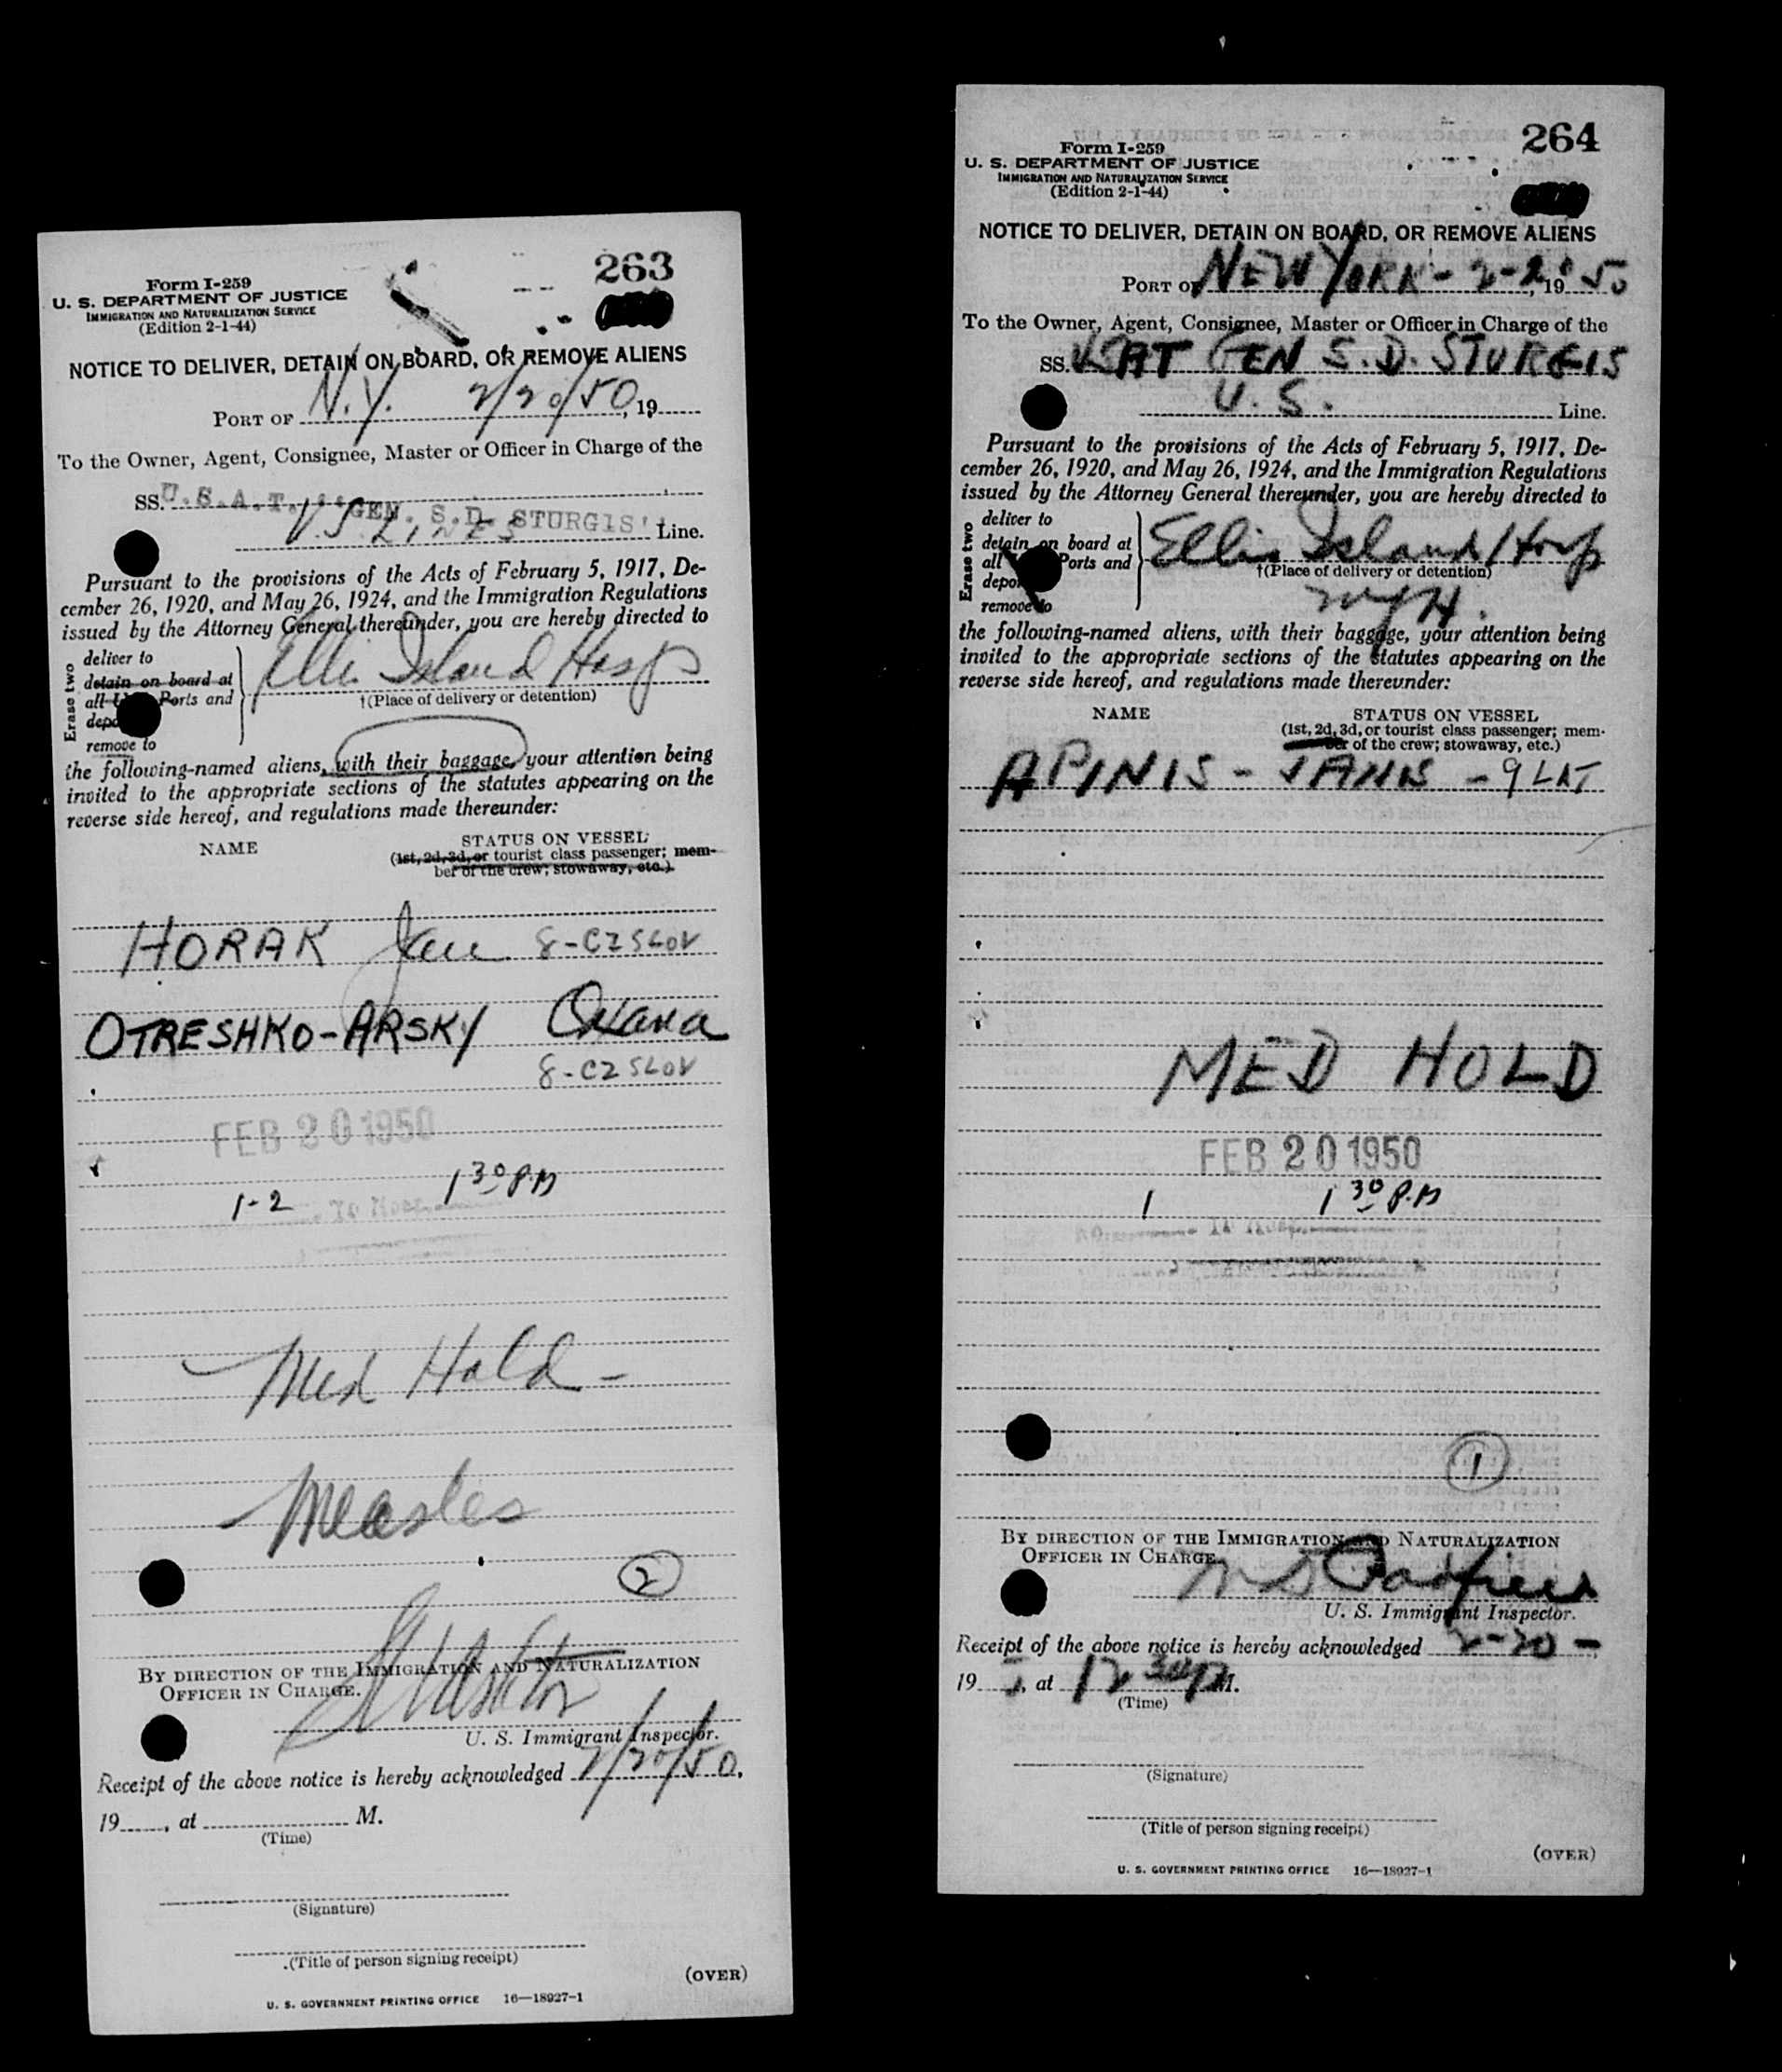 263
Form I-259
U. S. DEPARTMENT OF JUSTICE
IMMIGRATION AND NATURALIZATION SERVICE
(Edition 2-1-44)
NOTICE TO DELIVER, DETAIN ON BOARD, OR REMOVE ALIENS
PORT OF N.Y. 2/20/50, 19
To the Owner, Agent, Consignee, Master or Officer in Charge of the
SS. U.S.A.T. "GEN. S.D. STURGIS"
U.S. LINES Line.
Pursuant to the provisions of the Acts of February 5, 1917, De-
cember 26, 1920, and May 26, 1924, and the Immigration Regulations
issued by the Attorney General thereunder, you are hereby directed to
Erase two
deliver to
detain on board at
all Ports and
remove to
Ellis Island Hosp
†(Place of delivery or detention)
the following-named aliens, with their baggage, your attention being
invited to the appropriate sections of the statutes appearing on the
reverse side hereof, and regulations made thereunder:
NAME STATUS ON VESSEL
(1st, 2d, 3d, or tourist class passenger; mem-
ber of the crew; stowaway, etc.)
HORAK Jan 8-CZSLOV
OTRESHKO-ARSKY Oxana
8-CZSLOV
FEB 20 1950
1-2 1 30 P.M
Med Hold -
Measles
2
BY DIRECTION OF THE IMMIGRATION AND NATURALIZATION
OFFICER IN CHARGE.
U. S. Immigrant Inspector.
Receipt of the above notice is hereby acknowledged 2/20/50,
19, at M.
(Time)
(Signature)
(Title of person signing receipt)
(OVER)
U. S. GOVERNMENT PRINTING OFFICE 16—18927-1
264
Form I-259
U. S. DEPARTMENT OF JUSTICE
IMMIGRATION AND NATURALIZATION SERVICE
(Edition 2-1-44)
NOTICE TO DELIVER, DETAIN ON BOARD, OR REMOVE ALIENS
PORT OF NEW YORK - 2-20, 1950
To the Owner, Agent, Consignee, Master or Officer in Charge of the
SS. USAT GEN S.D. STURGIS
U.S. Line.
Pursuant to the provisions of the Acts of February 5, 1917, De-
cember 26, 1920, and May 26, 1924, and the Immigration Regulations
issued by the Attorney General thereunder, you are hereby directed to
Erase two
deliver to
detain on board at
all Ports and
remove to
Ellis Island Hosp
†(Place of delivery or detention)
the following-named aliens, with their baggage, your attention being
invited to the appropriate sections of the statutes appearing on the
reverse side hereof, and regulations made thereunder:
NAME STATUS ON VESSEL
(1st, 2d, 3d, or tourist class passenger; mem-
ber of the crew; stowaway, etc.)
APINIS - JANIS - 9 LAT
MED HOLD
FEB 20 1950
1 1 30 P.M
1
BY DIRECTION OF THE IMMIGRATION AND NATURALIZATION
OFFICER IN CHARGE.
U. S. Immigrant Inspector.
Receipt of the above notice is hereby acknowledged 2-20-,
19, at 12 30 P M.
(Time)
(Signature)
(Title of person signing receipt)
(OVER)
U. S. GOVERNMENT PRINTING OFFICE 16—18927-1